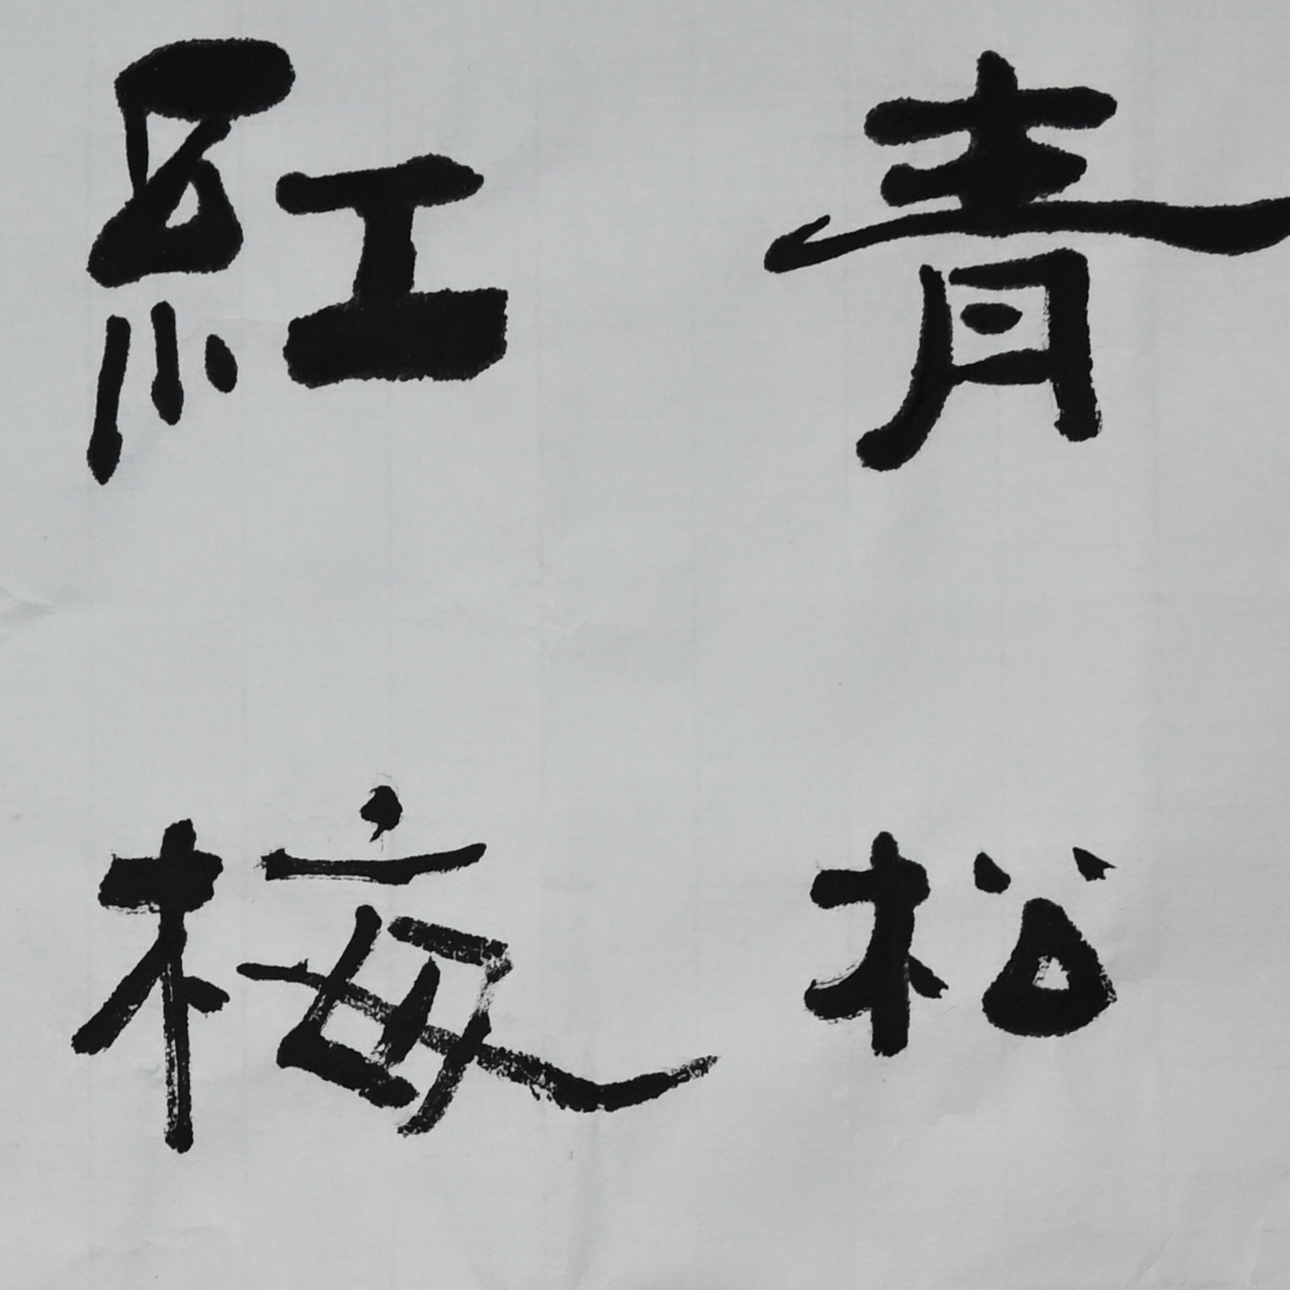 青松
紅梅